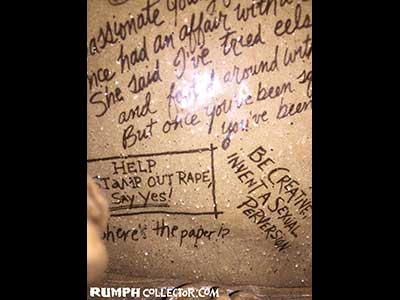 assionate you
nce had an affair with
She said I've tried eels
and f   d around with
But once you've been sq
you've been
HELP
STAMP OUT RAPE,
Say Yes!
where's the paper!?
BE CREATIVE,
INVENT A SEXUAL
PERVERSION
RUMPHCOLLECTOR.COM